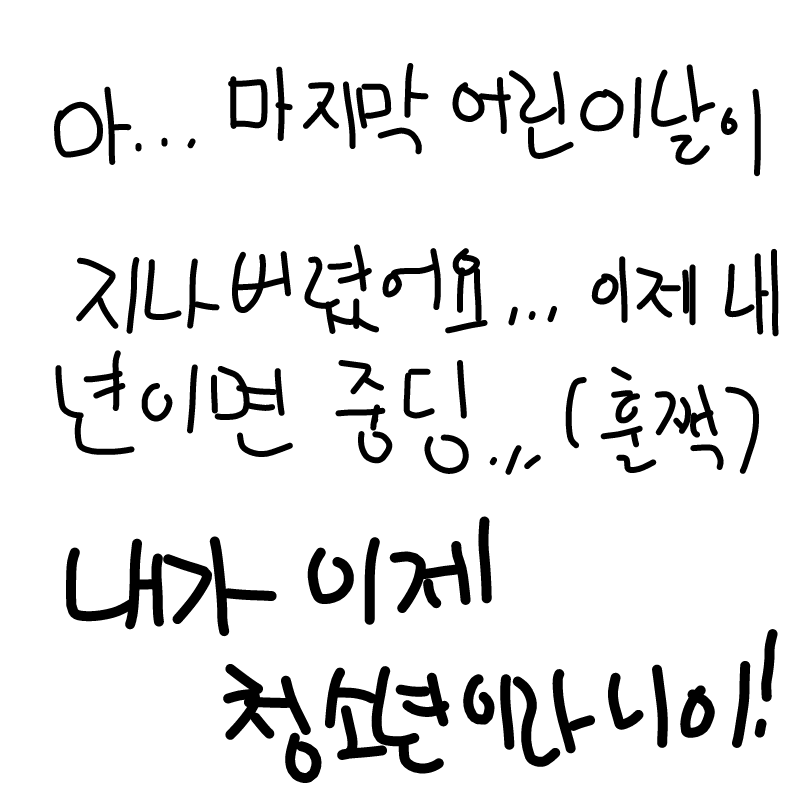 아... 마지막 어린이날이
지나버렸어요... 이제 내
년이면 중딩... (훌쩍)
내가 이제
청소년이라니이!